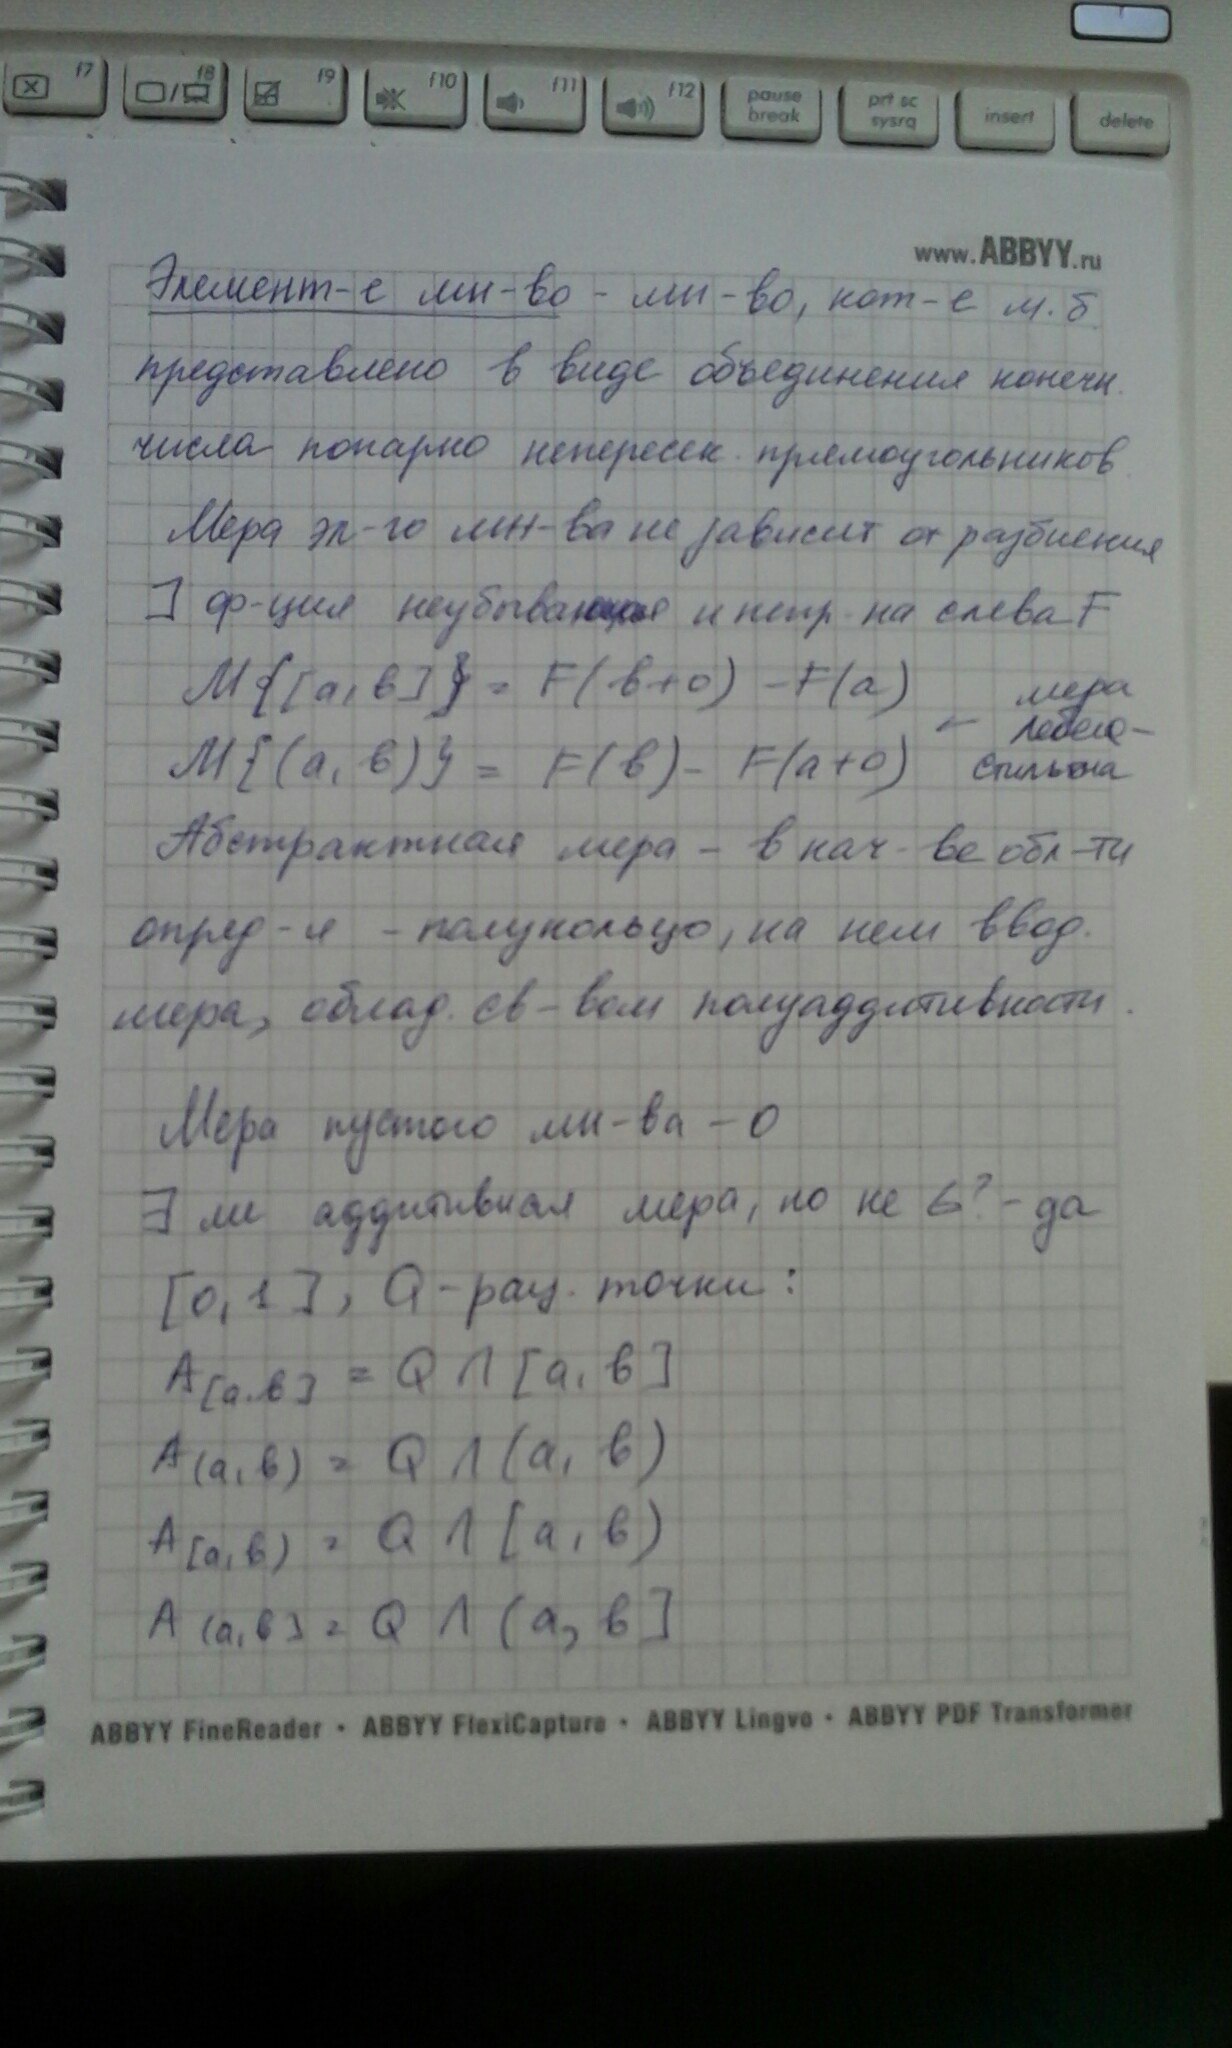 f7 f8 f9 f10 f11 f12 pause break prt sc sysrq insert delete
www.ABBYY.ru
Элемент-е мн-во - мн-во, кот-е м.б.
представлено в виде объединения конечн.
числа попарно непересек. прямоугольников
Мера эл-го мн-ва не зависит от разбиения
] ф-ция неубывающая и непр. на слева F
M{[a, b]} = F(b+0) - F(a)
M{(a, b)} = F(b) - F(a+0)
← мера
Лебега-
Стильтьеса
Абстрактная мера - в кач-ве обл-ти
опред-я - полукольцо, на нем ввод.
мера, облад. св-вом полуаддитивности.
Мера пустого мн-ва - 0
∃ ли аддитивная мера, но не σ? - да
[0, 1], Q - рац. точки:
A[a,b] = Q ∩ [a, b]
A(a,b) = Q ∩ (a, b)
A[a,b) = Q ∩ [a, b)
A(a,b] = Q ∩ (a, b]
ABBYY FineReader • ABBYY FlexiCapture • ABBYY Lingvo • ABBYY PDF Transformer